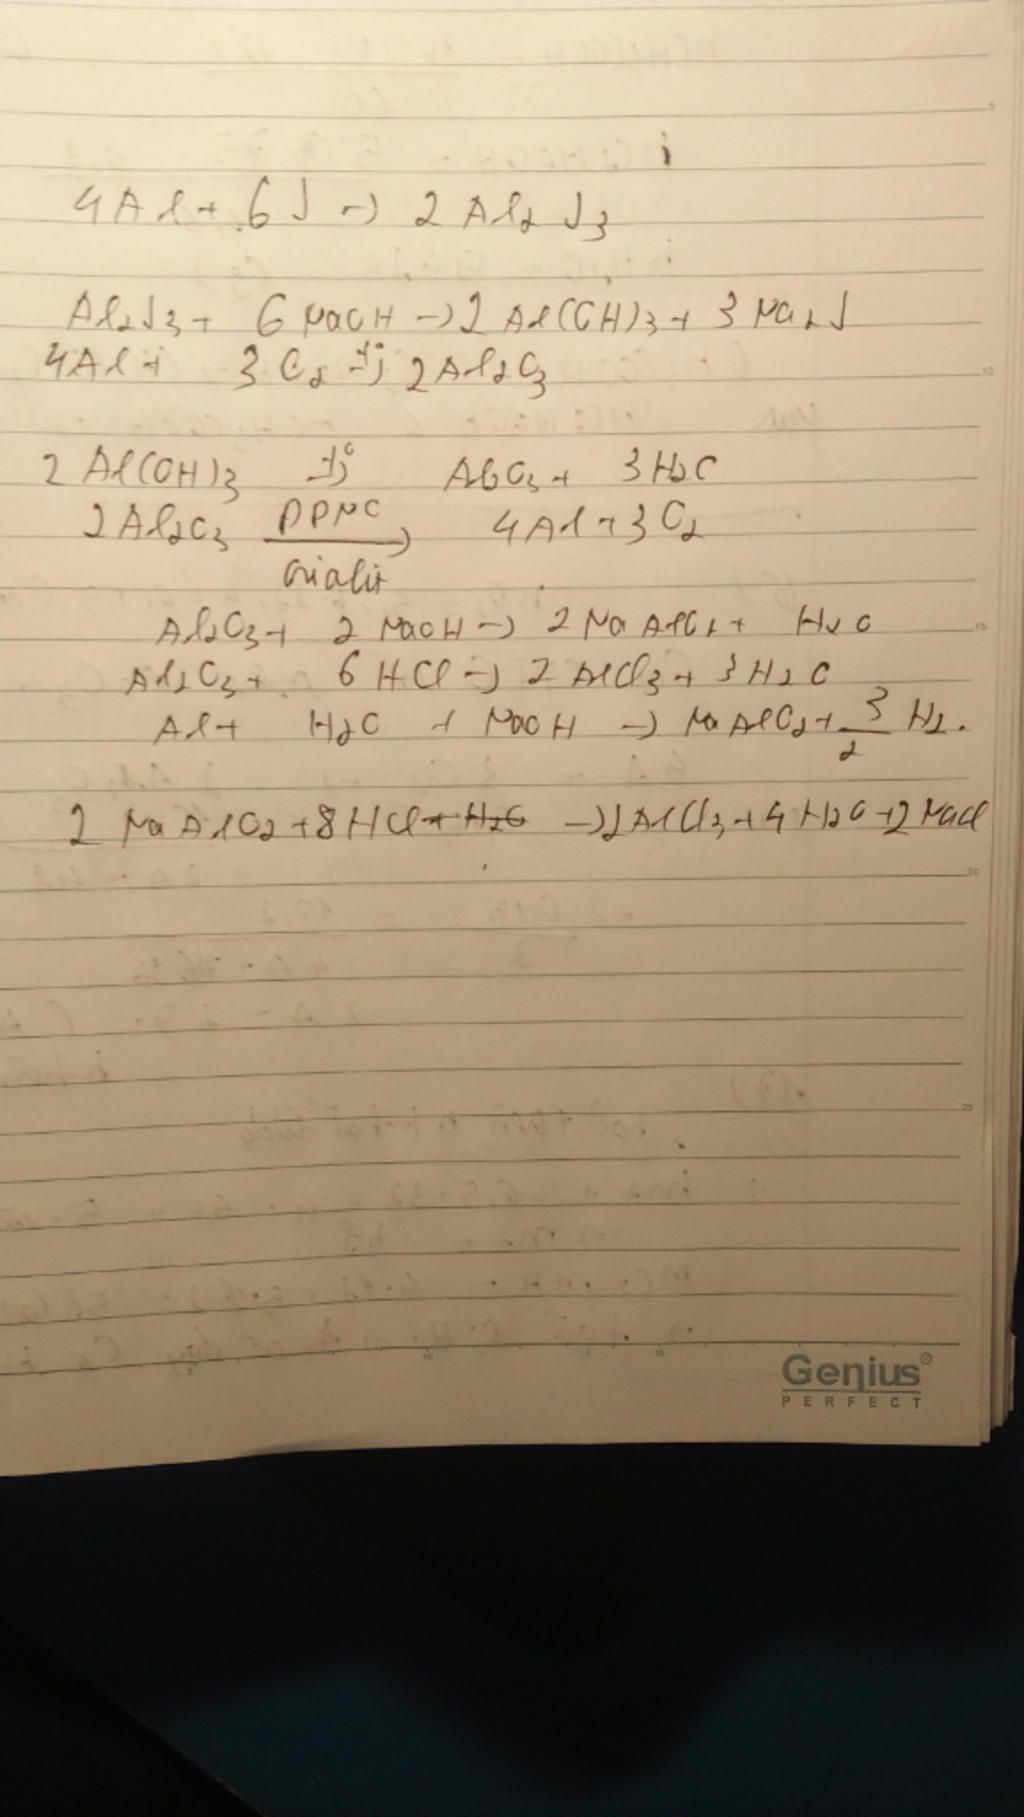 4Al + 6S → 2Al₂S₃
Al₂S₃ + 6NaOH → 2Al(OH)₃ + 3Na₂S
4Al + 3O₂ →t° 2Al₂O₃
2Al(OH)₃ →t° Al₂O₃ + 3H₂O
2Al₂O₃ ĐPNC → 4Al + 3O₂
criolit
Al₂O₃ + 2NaOH → 2NaAlO₂ + H₂O
Al₂O₃ + 6HCl → 2AlCl₃ + 3H₂O
Al + H₂O + NaOH → NaAlO₂ + 3/2 H₂.
2NaAlO₂ + 8HCl + H₂O → 2AlCl₃ + 4H₂O + 2NaCl
Genius
PERFECT